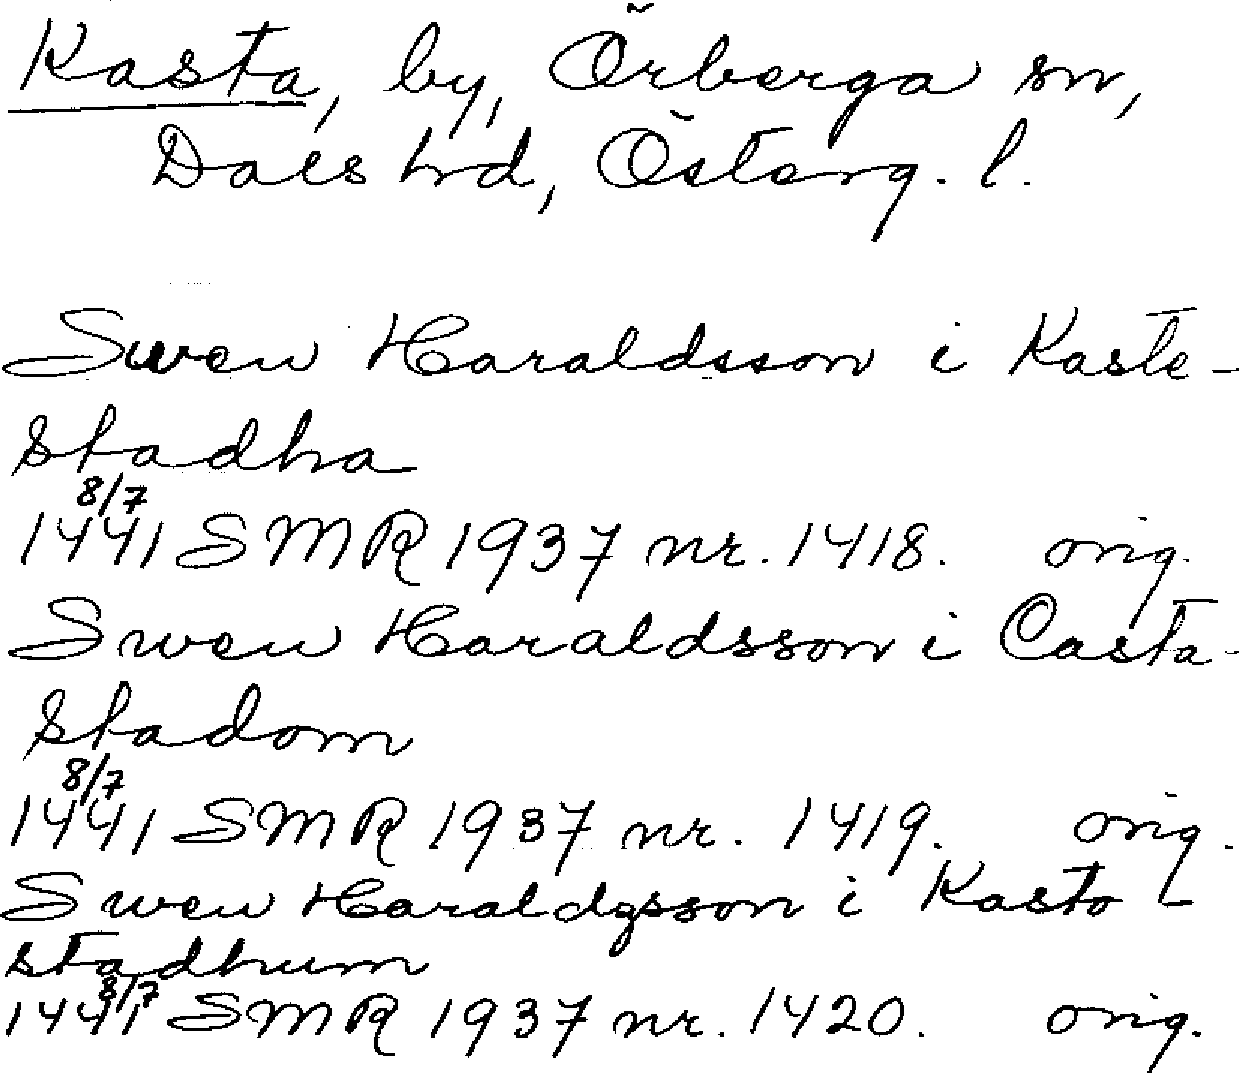 Kasta, by, Örberga sn,
Dals hd, Österg. l.
Swen Haraldsson i Kaste-
stadha
8/7
1441 SMR 1937 nr. 1418. orig.
Swen Haraldsson i Casta-
stadom
8/7
1441 SMR 1937 nr. 1419. orig.
Swen Haraldzsson i Kasto-
stadhum
8/7
1441 SMR 1937 nr. 1420. orig.